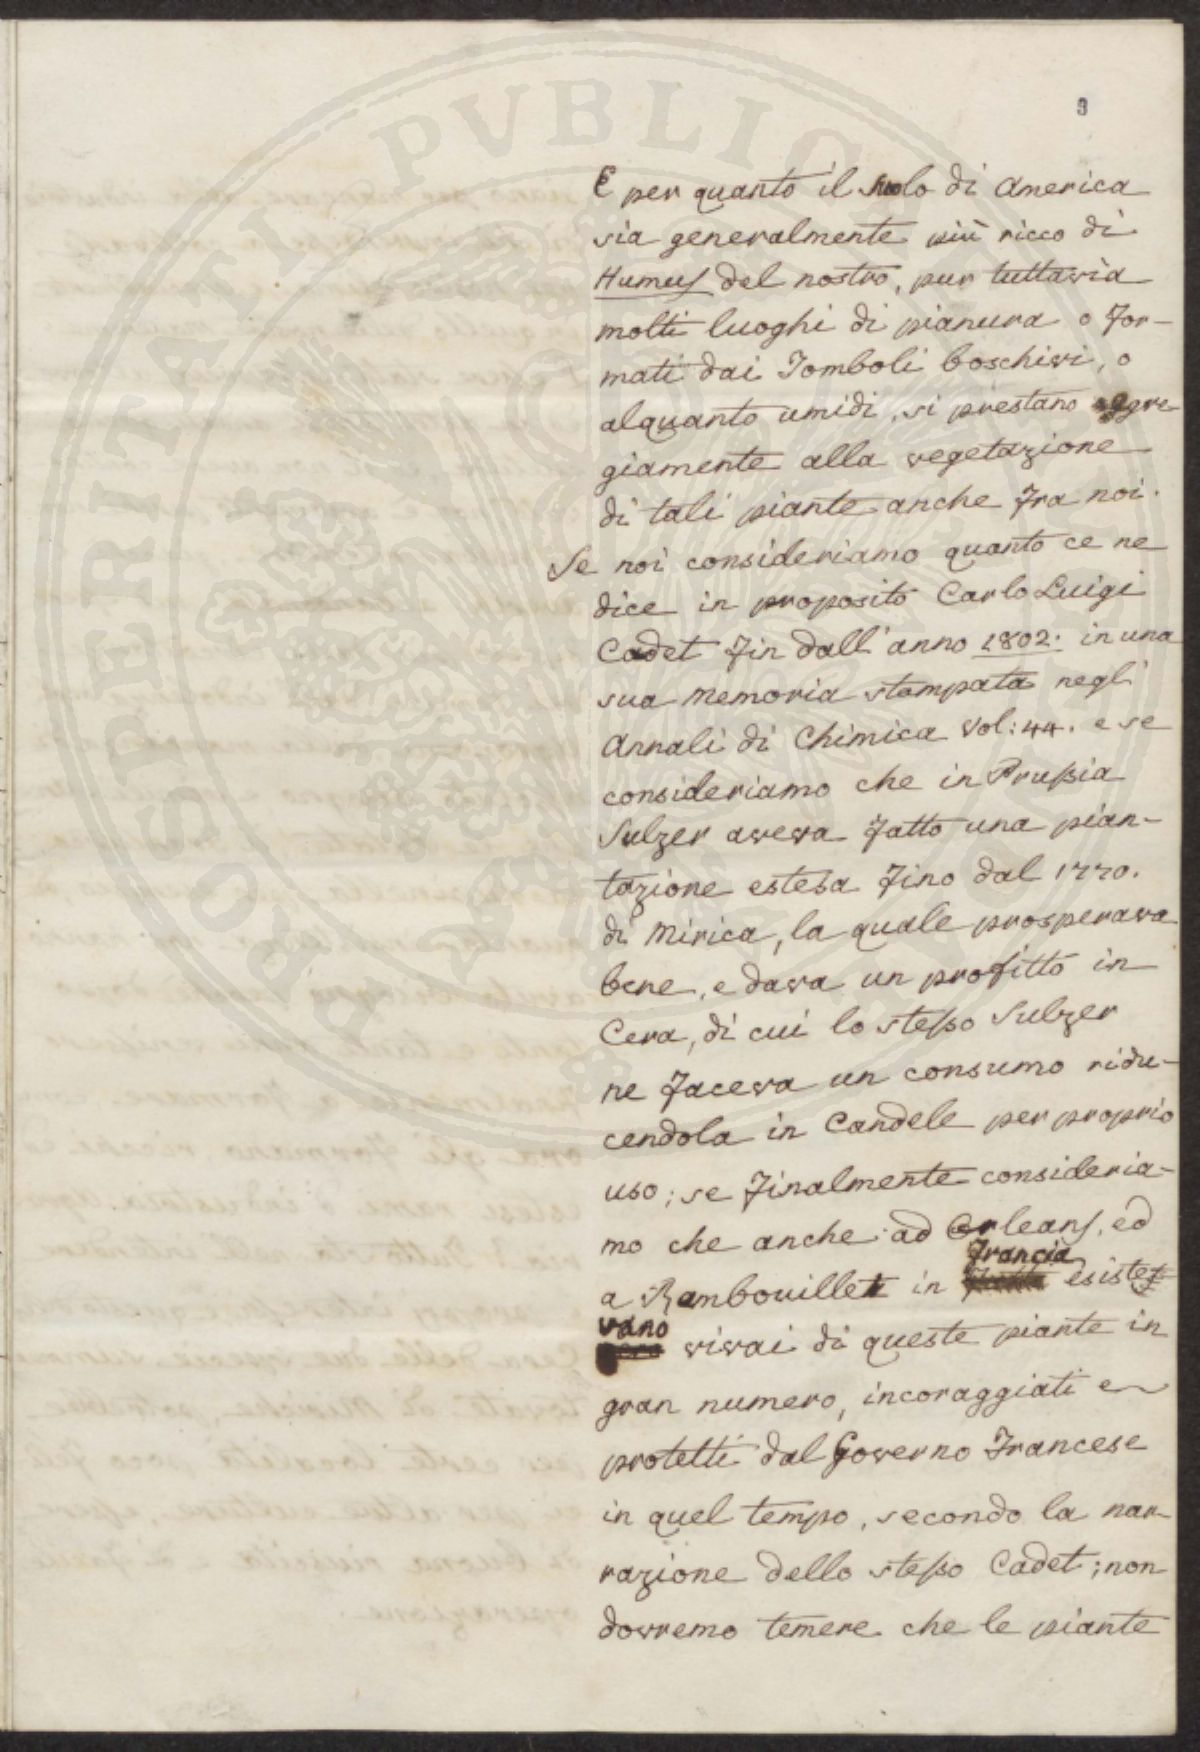 PROSPERITATI PVBLICAE
3
E per quanto il suolo di America
sia generalmente più ricco di
Humus del nostro, pur tuttavia
molti luoghi di pianura o for-
mati dai Tomboli boschivi, o
alquanto umidi, si prestano eggre-
giamente alla vegetazione
di tali piante anche fra noi.
Se noi consideriamo quanto ce ne
dice in proposito Carlo Luigi
Cadet fin dall'anno 1802. in una
sua memoria stampata negli
Annali di Chimica Vol: 44. e se
consideriamo che in Prussia
Sulzer aveva fatto una pian-
tazione estesa fino dal 1770.
di Mirica, la quale prosperava
bene, e dava un profitto in
Cera, di cui lo stesso Sulzer
ne faceva un consumo ridu-
cendola in Candele per proprio
uso; se finalmente consideria-
mo che anche ad Orleans, ed
a Rambouillet in Francia esiste-
vano vivai di queste piante in
gran numero, incoraggiati e
protetti dal Governo Francese
in quel tempo, secondo la nar-
razione dello stesso Cadet; non
dovremo temere che le piante